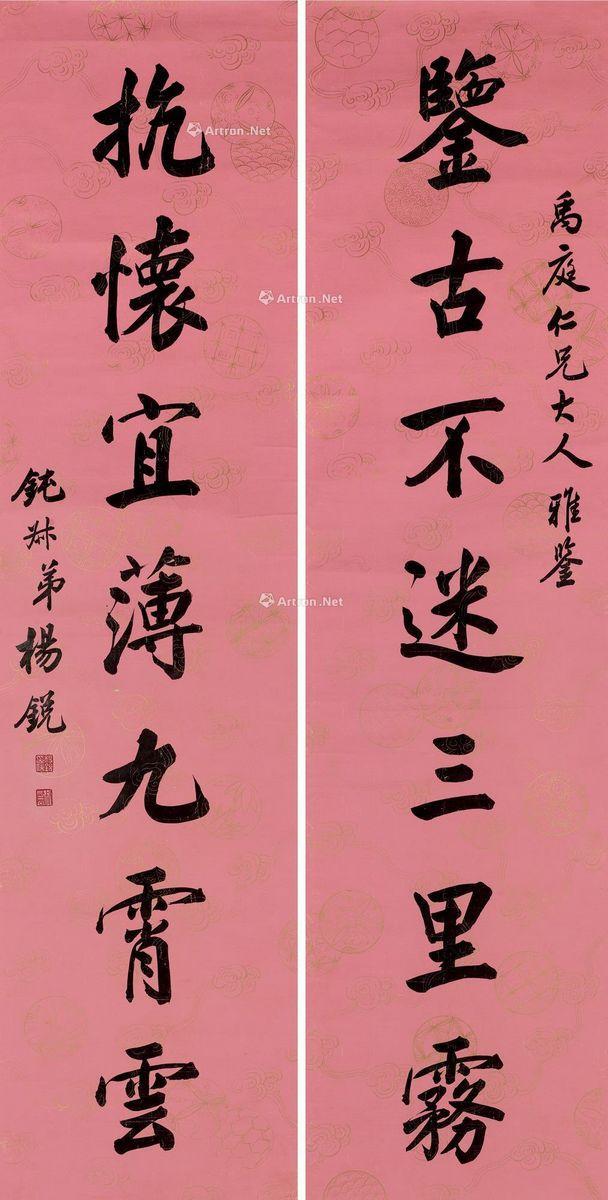 禹庭仁兄大人雅鉴
鑒古不迷三里霧
抗懷宜薄九霄雲
鈍叔弟楊鋭
Artron.Net
Artron.Net
Artron.Net